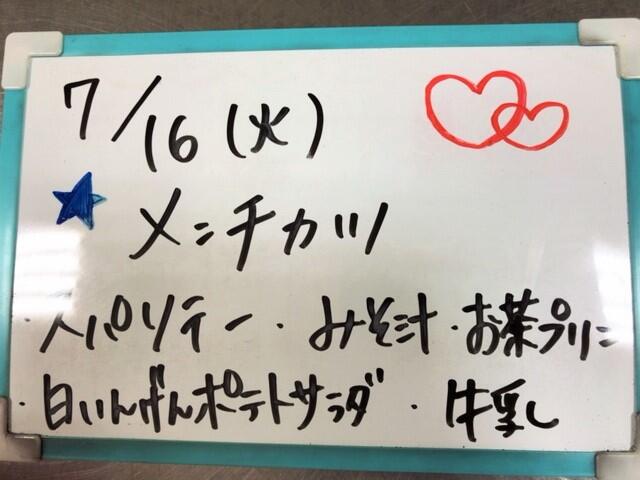 7/16(火)
★メンチカツ
・スパソテー・みそ汁・お茶プリン
・白いんげんポテトサラダ・牛乳